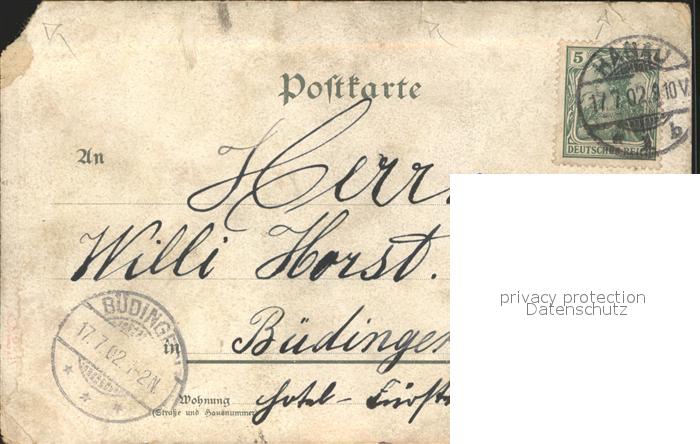 5
HANAU
17.7.02. 9-10V.
b
DEUTSCHES REICH
Postkarte
An
Herr
Willi Horst.
privacy protection
Datenschutz
BÜDINGEN
17.7.02. 1-2N.
in
Büdingen
Wohnung
(Straße und Hausnummer)
Hotel - Fürst